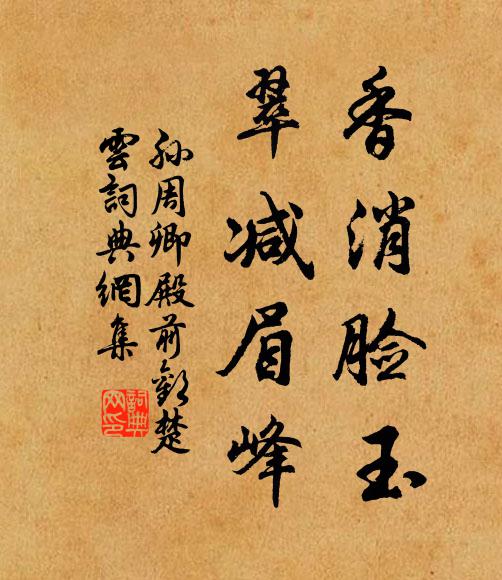 香消脸玉
翠减眉峰
孙周卿殿前歡楚
雲詞典網集
詞典
网印